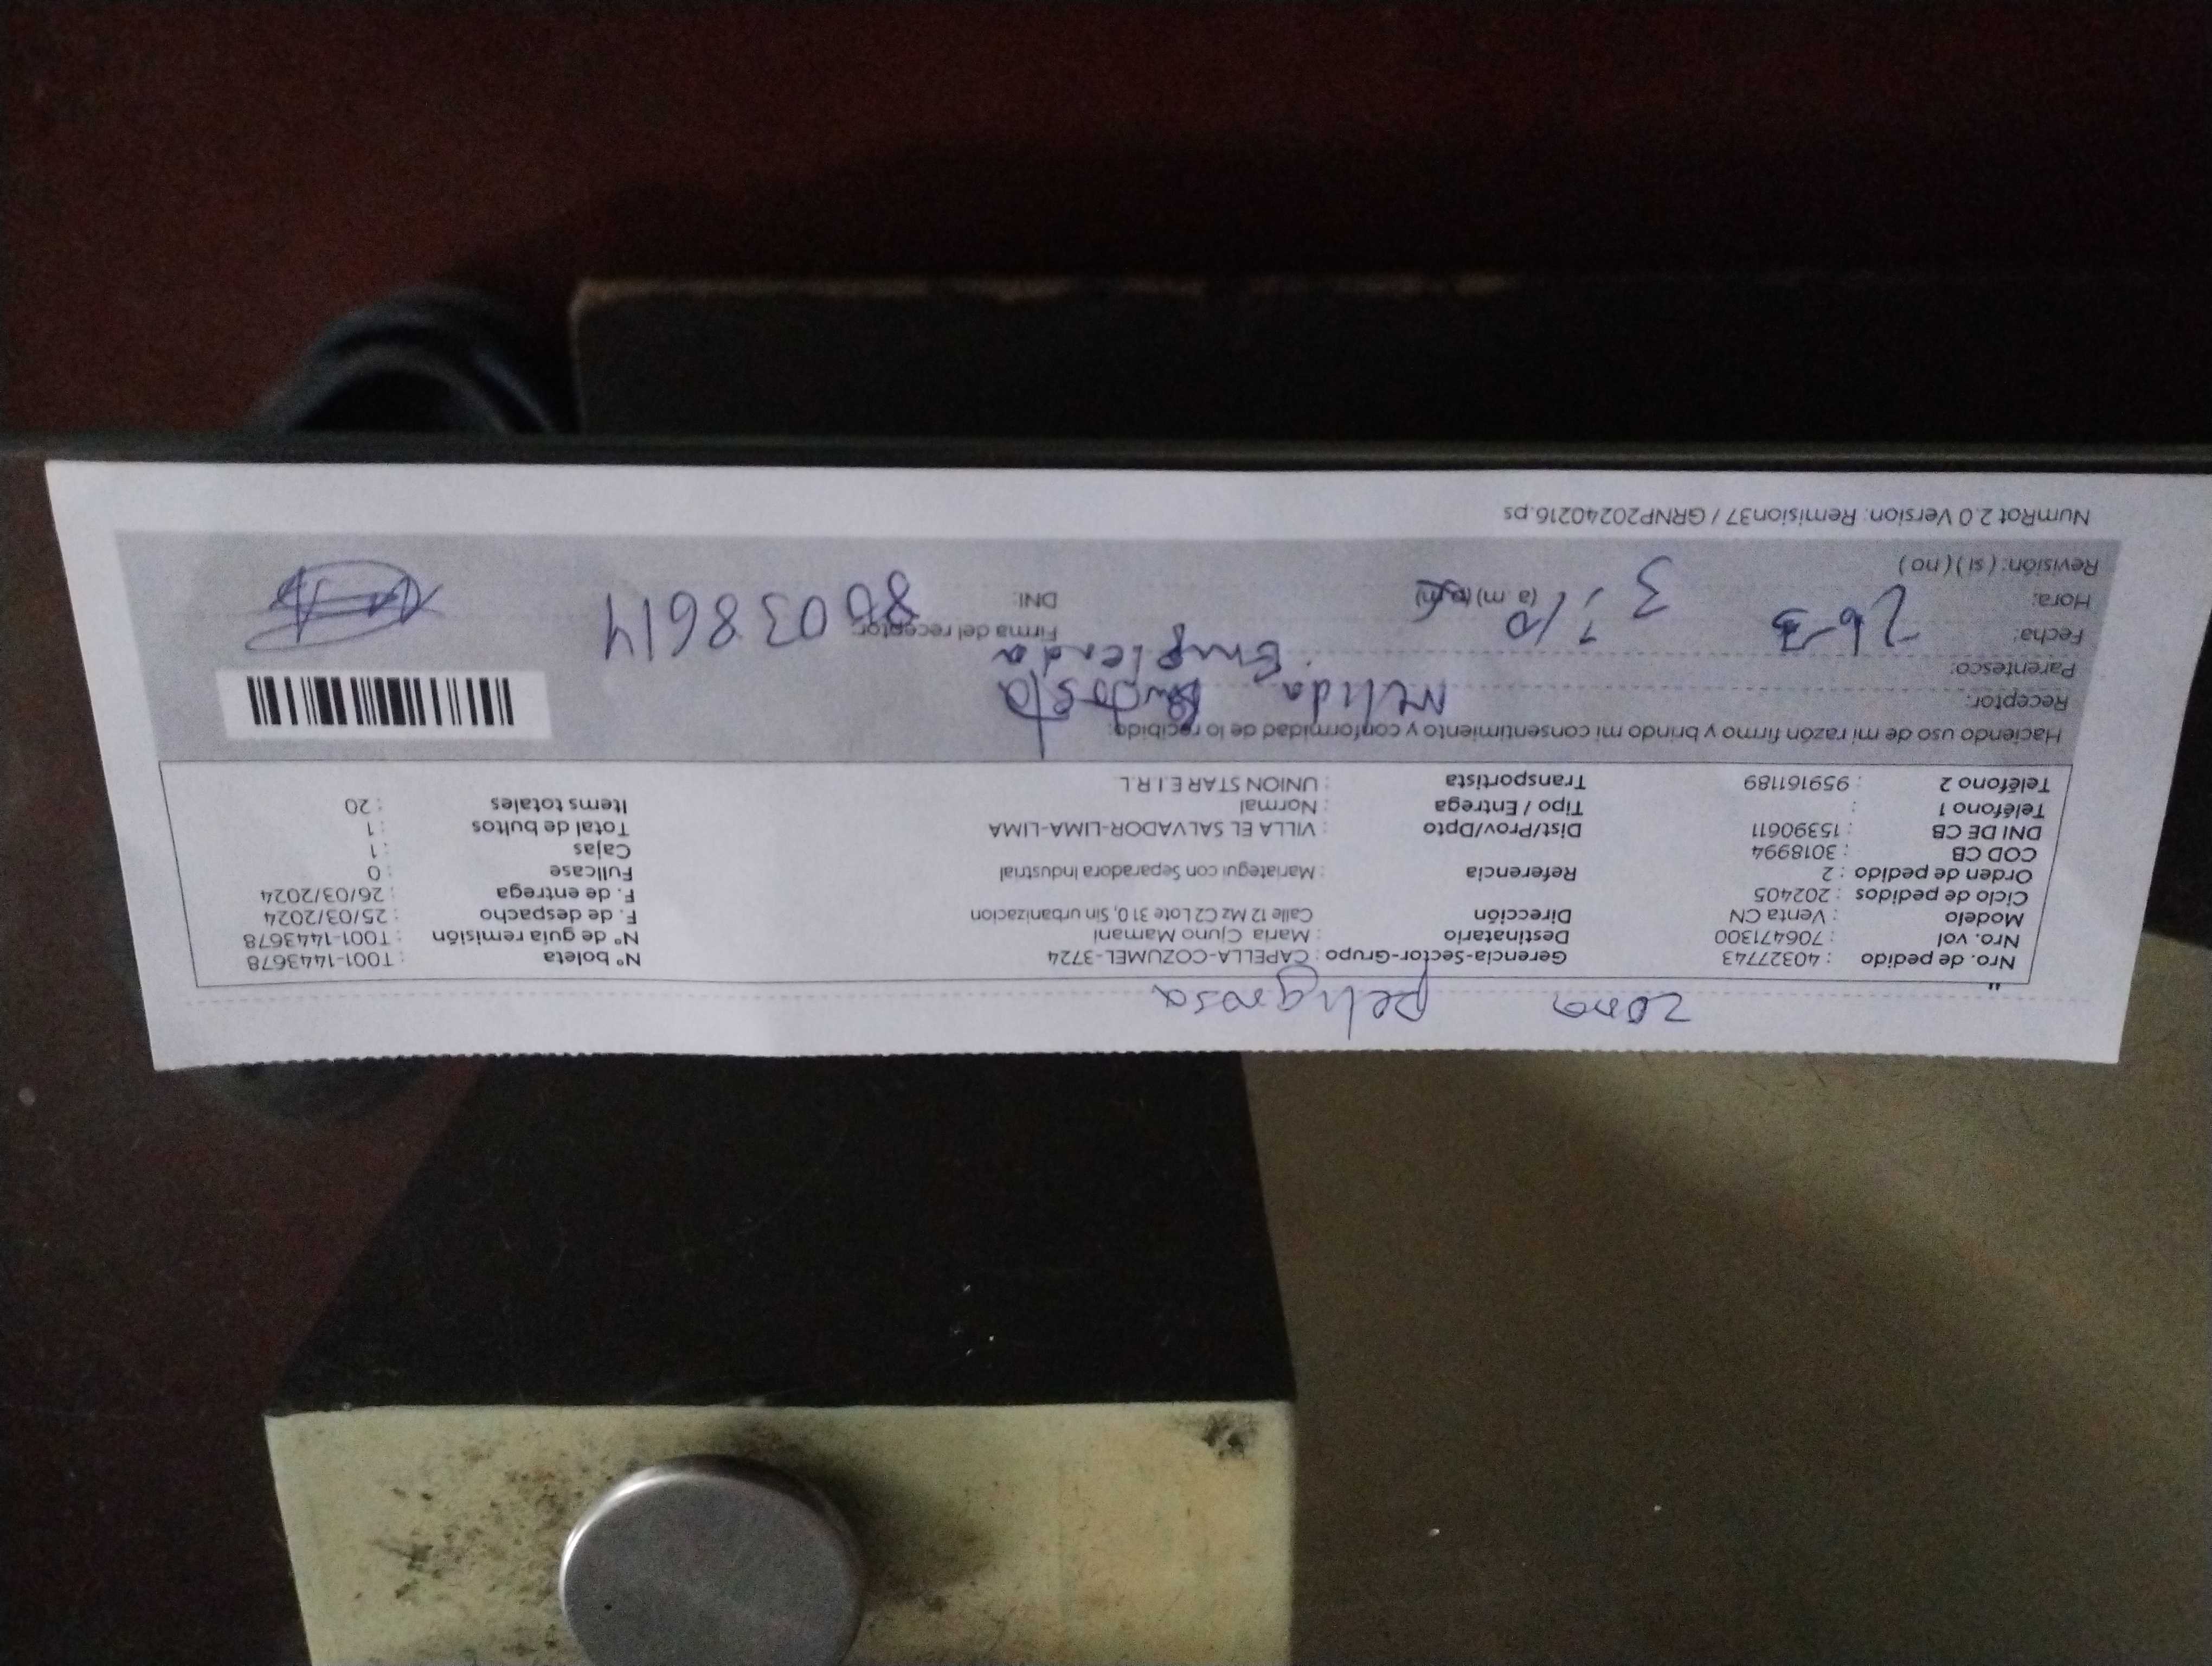 zona peligrosa
Nro. de pedido : 40327743 Gerencia-Sector-Grupo : CAPELLA-COZUMEL-3724 N° boleta : T001-1443678
Nro. vol : 706471300 Destinatario : Maria Cjuno Mamani N° de guia remisión : T001-1443678
Modelo : Venta CN Dirección : Calle 12 Mz C2 Lote 31 0, Sin urbanizacion F. de despacho : 25/03/2024
Ciclo de pedidos : 202405 F. de entrega : 26/03/2024
Orden de pedido : 2 Referencia : Mariategui con Separadora Industrial Fullcase : 0
COD CB : 3018994 Cajas : 1
DNI DE CB : 15390611 Dist/Prov/Dpto : VILLA EL SALVADOR-LIMA-LIMA Total de bultos : 1
Teléfono 1 : Tipo / Entrega : Normal Items totales : 20
Teléfono 2 : 959161189 Transportista : UNION STAR E.I.R.L
Haciendo uso de mi razón firmo y brindo mi consentimiento y conformidad de lo recibido:
Receptor: Nelida
Parentesco:
Fecha: 26-3 Firma del receptor:
Hora: 3:10 (a m) DNI: 80038614
Revisión: ( si ) ( no )
NumRot 2.0 Version: Remision37 / GRNP20240216.ps